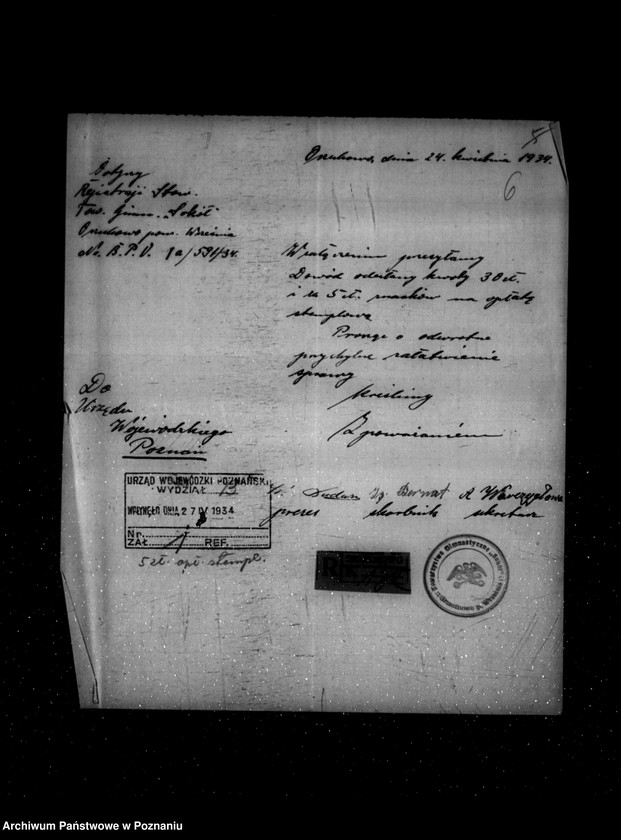 dnia 24. kwietnia 1934.
6
Dotyczy
Rejestracji Stow.
Tow. Gimn. "Sokół"
pow. Września
No. B.P.V. 1a/591/34.
W załączeniu przesyłamy
Dowód odesłany kwoty 30 zł.
i za 5 zł. znaczków na opłatę
stemplową
Prosząc o odwrotne
przychylne załatwienie
sprawy
kreślimy
Z poważaniem
Do
Urzędu
Wojewódzkiego
Poznań
URZĄD WOJEWÓDZKI POZNAŃSKI
WYDZIAŁ B
WPŁYNĘŁO DNIA 27 IV 1934
Nr.
ZAŁ. 1 REF.
5 zł. opł. stempl.
Bernat
prezes skarbnik sekretarz
Towarzystwo Gimnastyczne "Sokół"
Archiwum Państwowe w Poznaniu